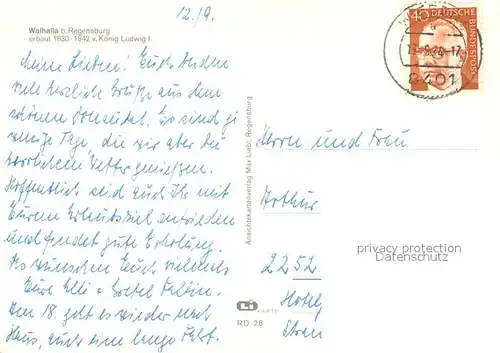 12./9.
Walhalla b. Regensburg
erbaut 1830-1842 v. König Ludwig I.
Meine Lieben! Euch senden
viele herzliche Grüße aus dem
schönen Donautal. Es sind ja
wenige Tage, die wir aber bei
herrlichem Wetter genießen.
Hoffentlich seid auch Ihr mit
Eurem Urlaubsziel zufrieden
und findet gute Erholung.
Es wünschen Euch vielmals
Eure Elli +
Am 18. geht es wieder nach
Haus, auch eine lange Fahrt.
Ansichtskartenverlag Max Liebl, Regensburg
KARTE
RD 28
40
DEUTSCHE BUNDESPOST
13.-9.74-17
8401
Herrn und Frau
Arthur
2252
Hotel
Stran
privacy protection
Datenschutz